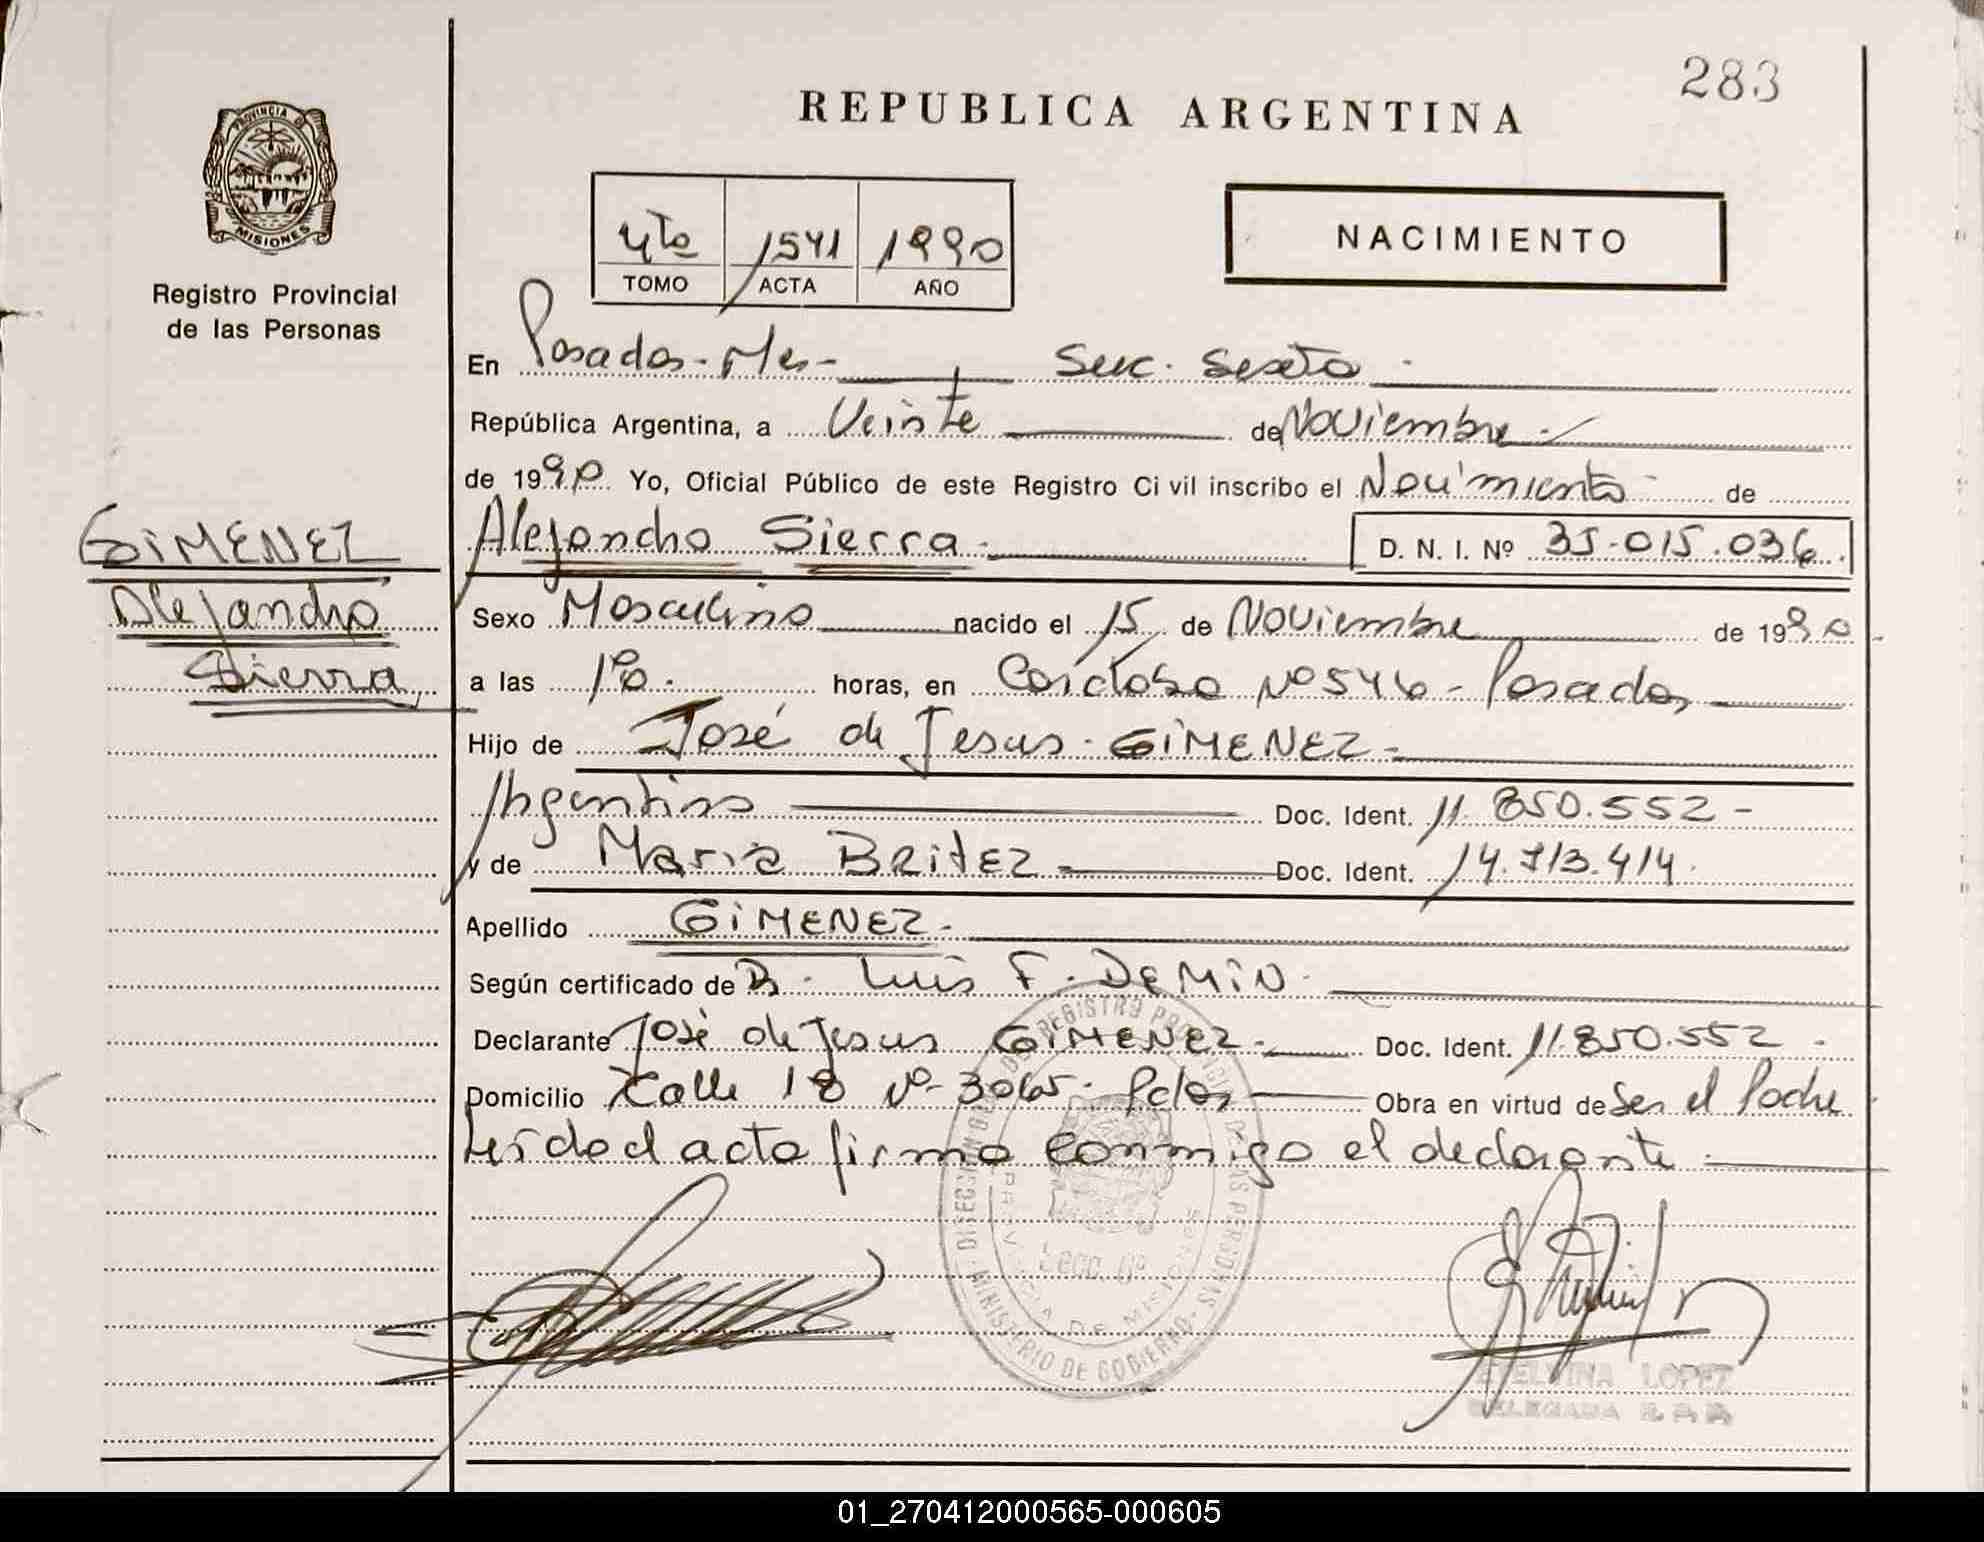 283
REPUBLICA ARGENTINA
PROVINCIA D
MISIONES
Registro Provincial
de las Personas
4to 1541 1990
TOMO ACTA AÑO
NACIMIENTO
En Posadas - Mnes - Secc. Sexta
República Argentina, a Veinte de Noviembre
de 1990 Yo, Oficial Público de este Registro Ci vil inscribo el Nacimiento de
GIMENEZ
Alejandro
Sierra
Alejandro Sierra D. N. I. Nº 35.015.036
Sexo Masculino nacido el 15 de Noviembre de 1990
a las horas, en Nº 546 - Posadas
Hijo de José de Jesus GIMENEZ
Argentino Doc. Ident. 11.850.552
y de Maria BRITEZ Doc. Ident. 14.713.414
Apellido GIMENEZ
Según certificado de Luis F. DEMIN
Declarante José de Jesus GIMENEZ Doc. Ident. 11.850.552
Domicilio Calle 18 Nº 3065 Pdas Obra en virtud de Ser el Padre
Leida el acta firma conmigo el declarante
DIRECCION DEL REGISTRO PROVINCIAL DE LAS PERSONAS
MINISTERIO DE GOBIERNO
PROVINCIA DE MISIONES
SECC. 6ª
ETELVINA LOPEZ
DELEGADA
01_270412000565-000605